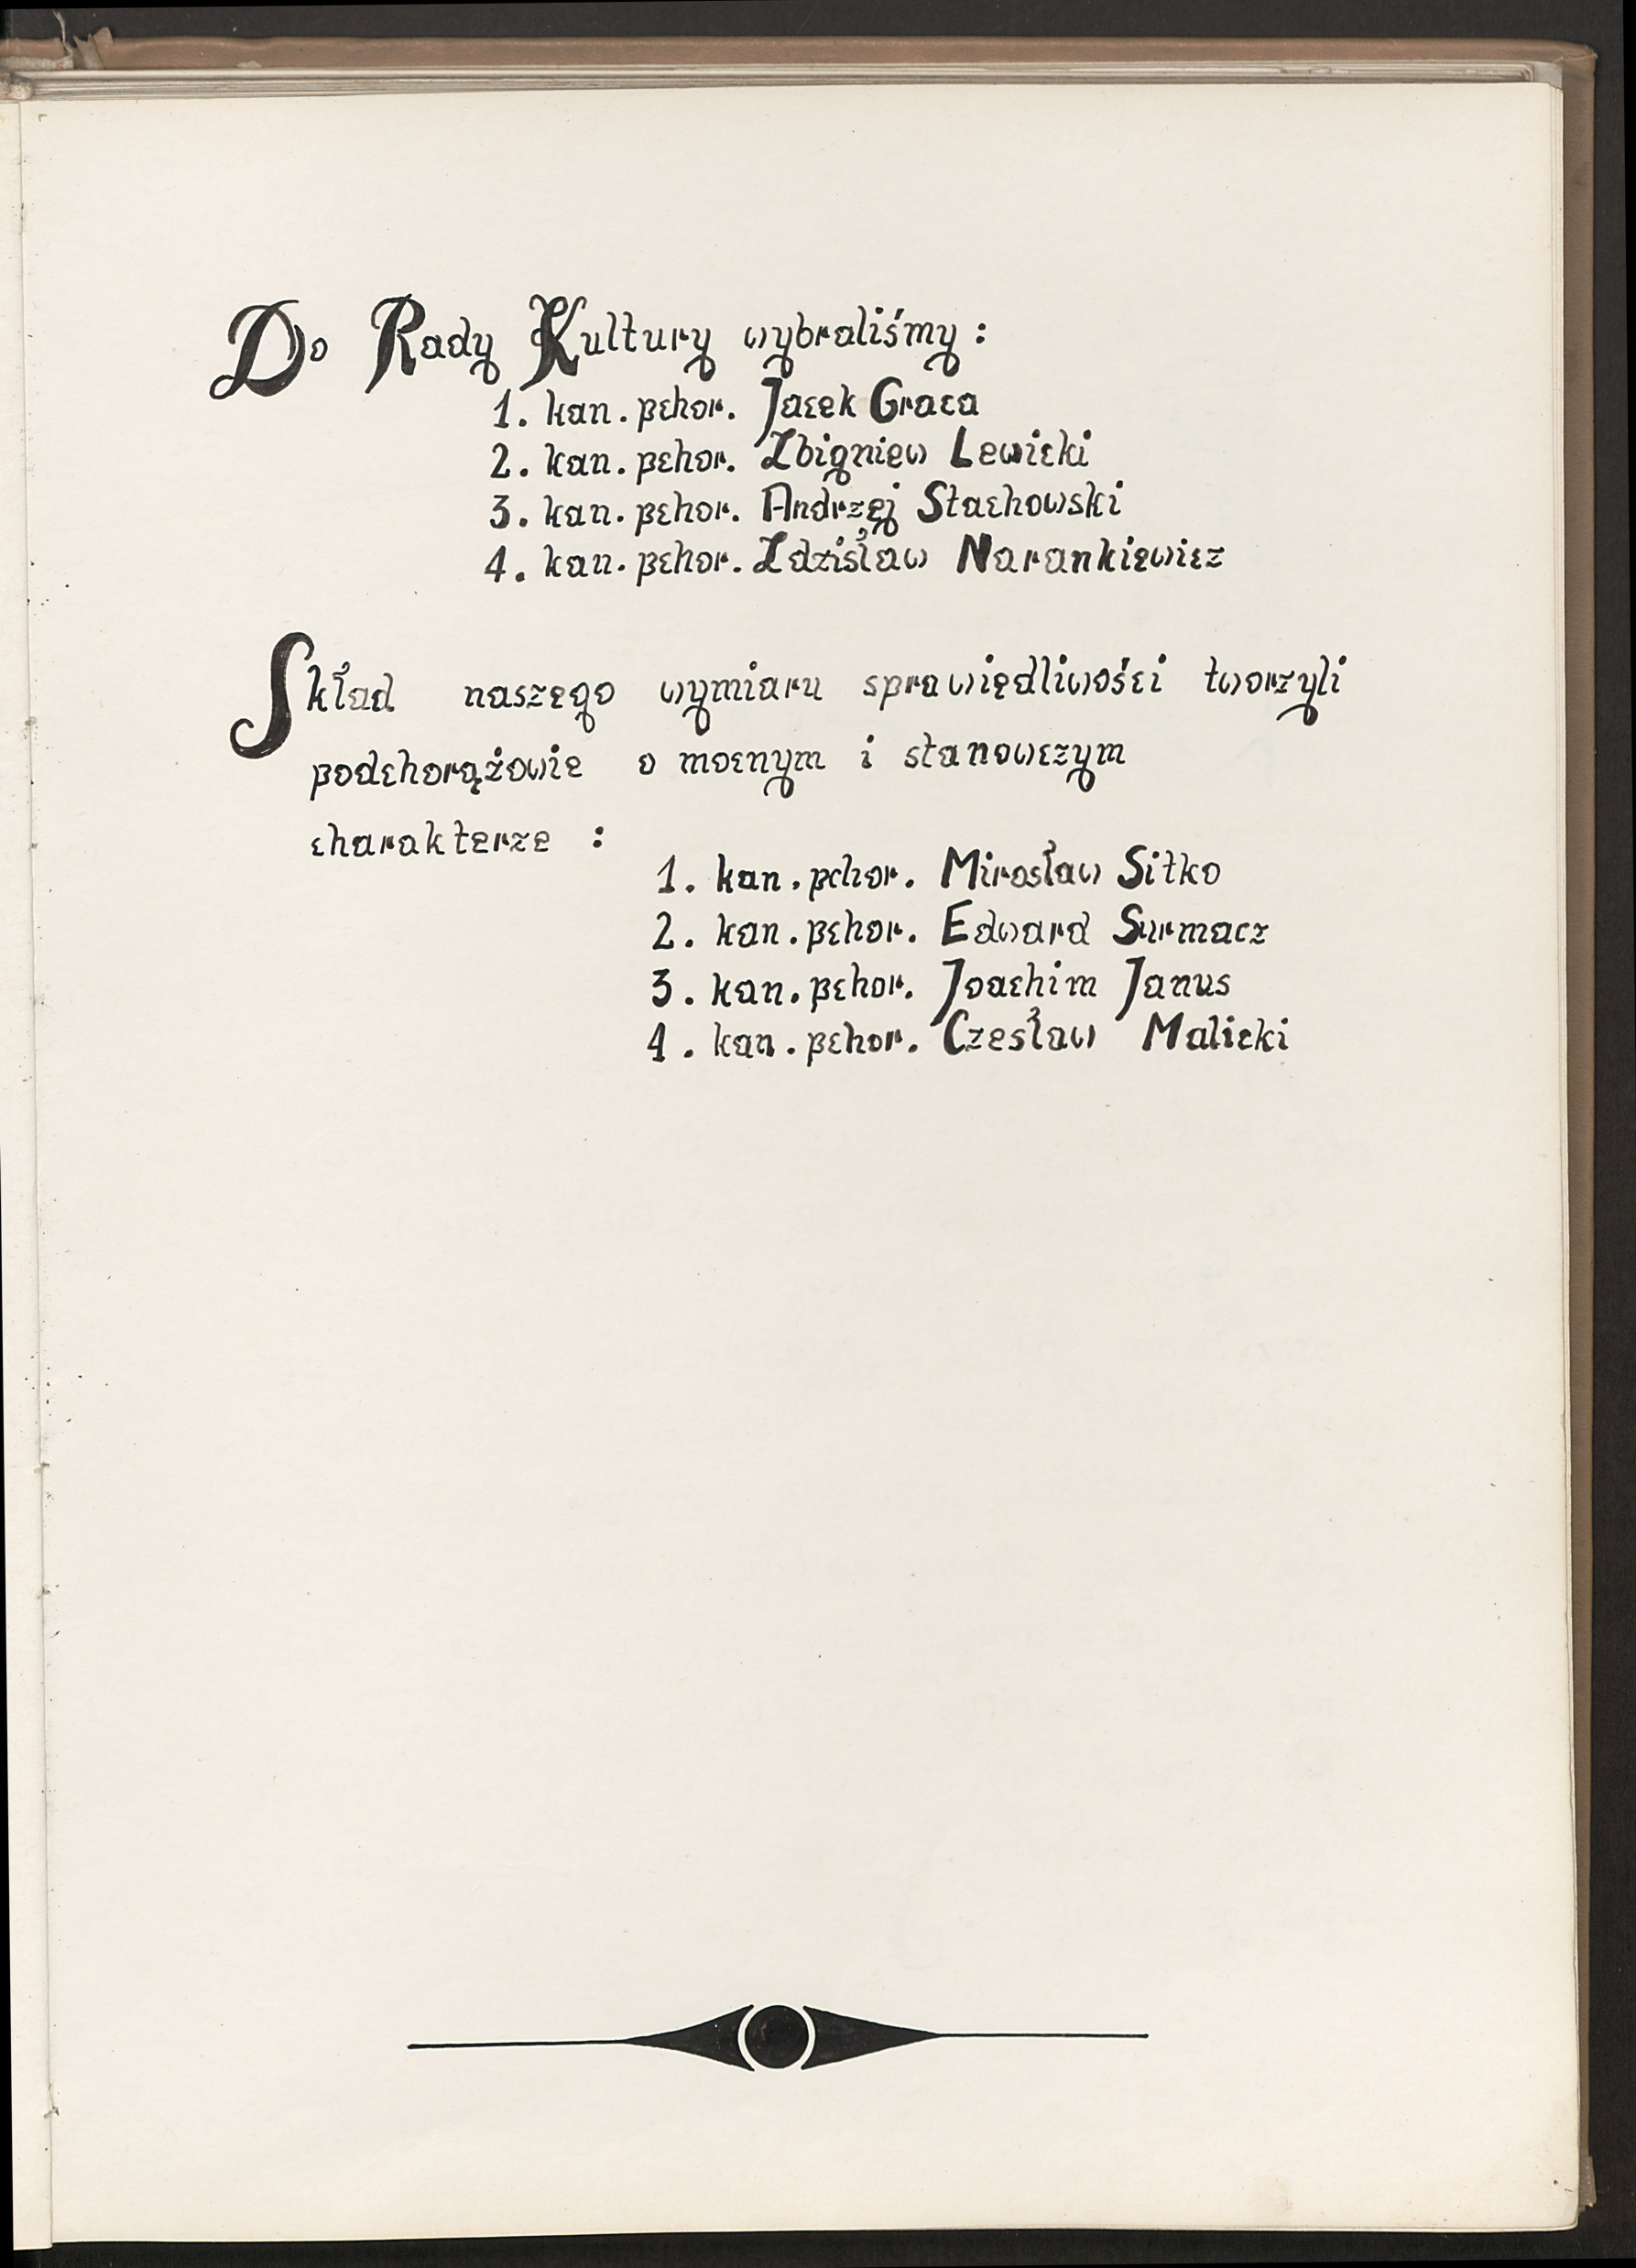 Do Rady Kultury wybraliśmy:
1. kan. pchor. Jacek Graca
2. kan. pchor. Zbigniew Lewicki
3. kan. pchor. Andrzej Stachowski
4. kan. pchor. Zdzisław Narankiewicz
Skład naszego wymiaru sprawiedliwości tworzyli
podchorążowie o mocnym i stanowczym
charakterze :
1. kan. pchor. Mirosław Sitko
2. kan. pchor. Edward Surmacz
3. kan. pchor. Joachim Janus
4. kan. pchor. Czesław Malicki